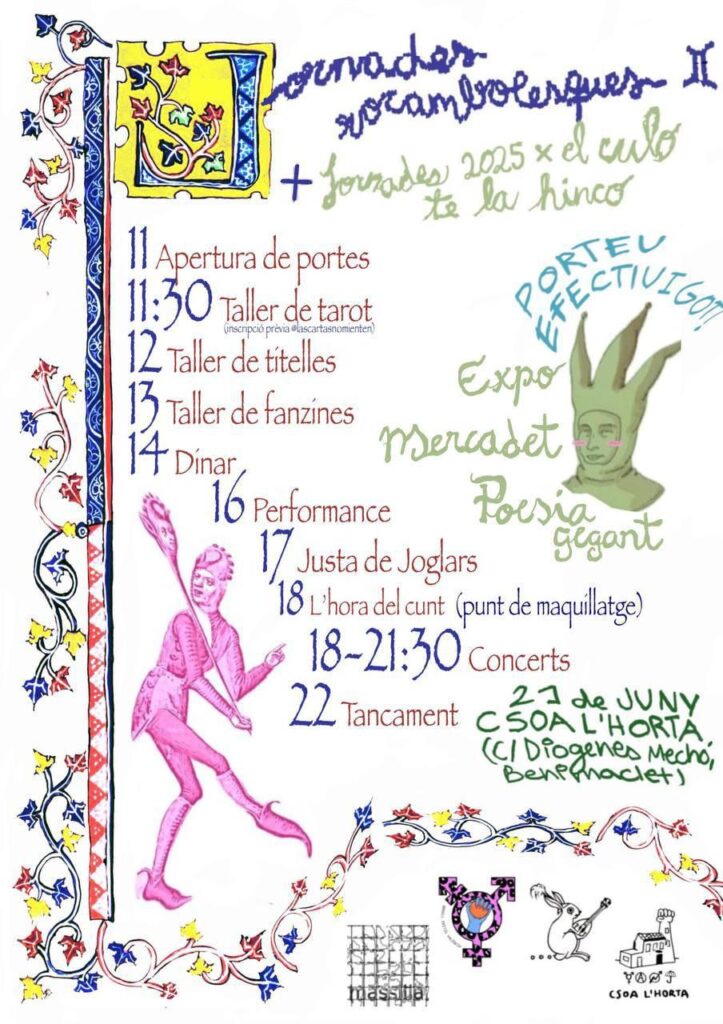 Jornades
rocambolesques II
+ Jornades 2025 x el culo
te la hinco
11 Apertura de portes
11:30 Taller de tarot
(inscripció prèvia @lascartasnomienten)
12 Taller de titelles
13 Taller de fanzines
14 Dinar
16 Performance
17 Justa de Joglars
18 L'hora del cunt (punt de maquillatge)
18-21:30 Concerts
22 Tancament
PORTEU
EFECTIU IGOT!
Expo
Mercadet
Poesia
gegant
21 de JUNY
CSOA L'HORTA
(C/ Diogenes Mechó,
Benimaclet)
massilia
CSOA L'HORTA